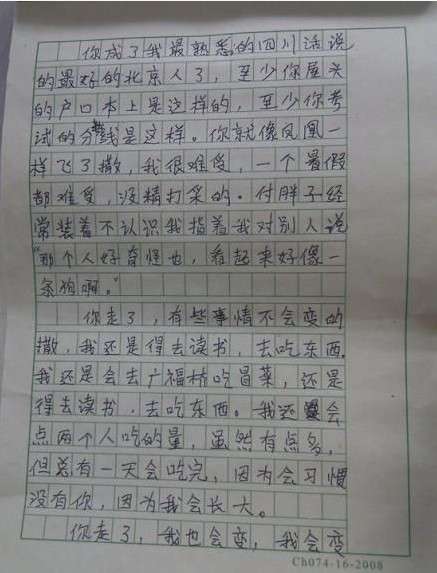 你成了我最熟悉的四川话说
的最好的北京人了，至少你屋头
的户口本上是这样的，至少你考
试的分数线是这样。你就像凤凰一
样飞了撒，我很难受，一个暑假
都难受，没精打采的。付胖子经
常装着不认识我指着我对别人说
“那个人好奇怪也，看起来好像一
条狗啊。”
你走了，有些事情不会变的
撒，我还是得去读书，去吃东西。
我还是会去广福桥吃冒菜，还是
得去读书，去吃东西。我还会
点两个人吃的量，虽然有点多，
但总有一天会吃完，因为会习惯
没有你，因为我会长大。
你走了，我也会变，我会变
Ch074-16-2008